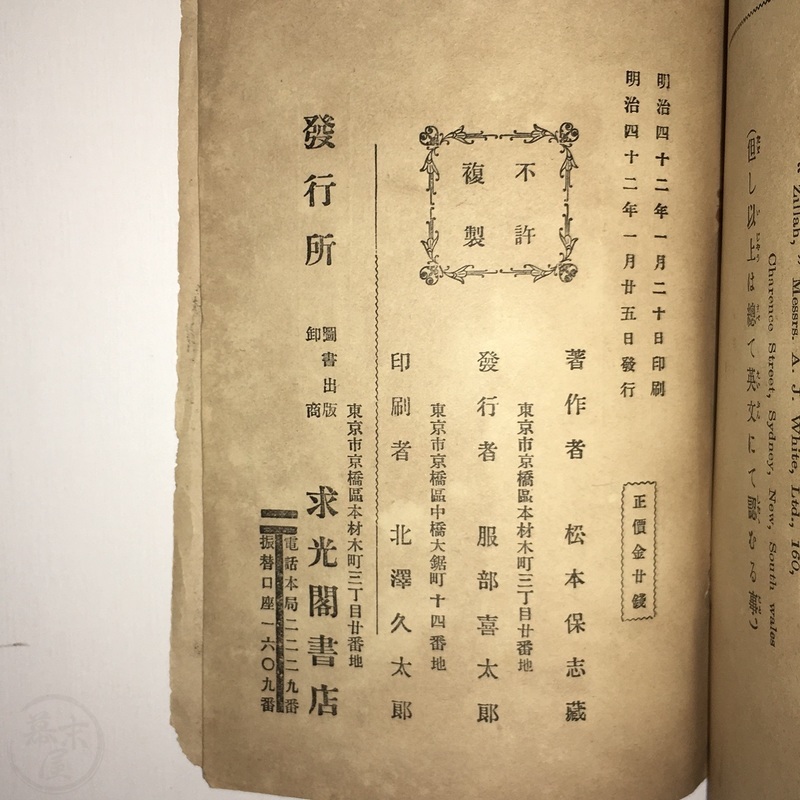 “Zillah,” Messrs. A. J. White, Ltd., 160,
Charence Street, Sydney, New, South wales
(但し以上は總て英文にて認むる事)
明治四十二年一月二十日印刷
明治四十二年一月廿五日發行
正價金廿錢
不許
複製
著作者 松本保志藏
東京市京橋區本材木町三丁目廿番地
發行者 服部喜太郎
東京市京橋區中橋大鋸町十四番地
印刷者 北澤久太郎
東京市京橋區本材木町三丁目廿番地
發行所 圖書出版
卸商
求光閣書店
電話本局二二二九番
振替口座一六〇九番